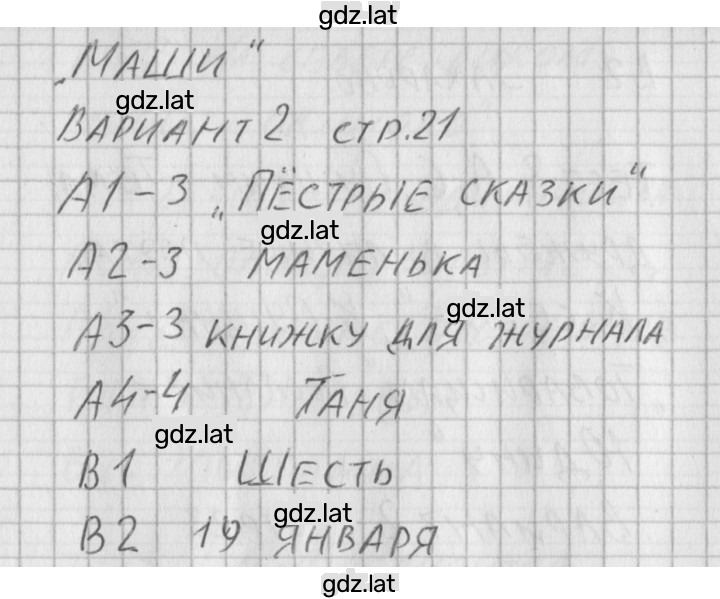 gdz.lat
„МАШИ“
gdz.lat
ВАРИАНТ 2 СТР.21
А1-3 „ПЁСТРЫЕ СКАЗКИ“
gdz.lat
А2-3 МАМЕНЬКА
gdz.lat
А3-3 КНИЖКУ ДЛЯ ЖУРНАЛА
А4-4 ТАНЯ
gdz.lat
В1 ШЕСТЬ
gdz.lat
В2 19 ЯНВАРЯ
gdz.lat